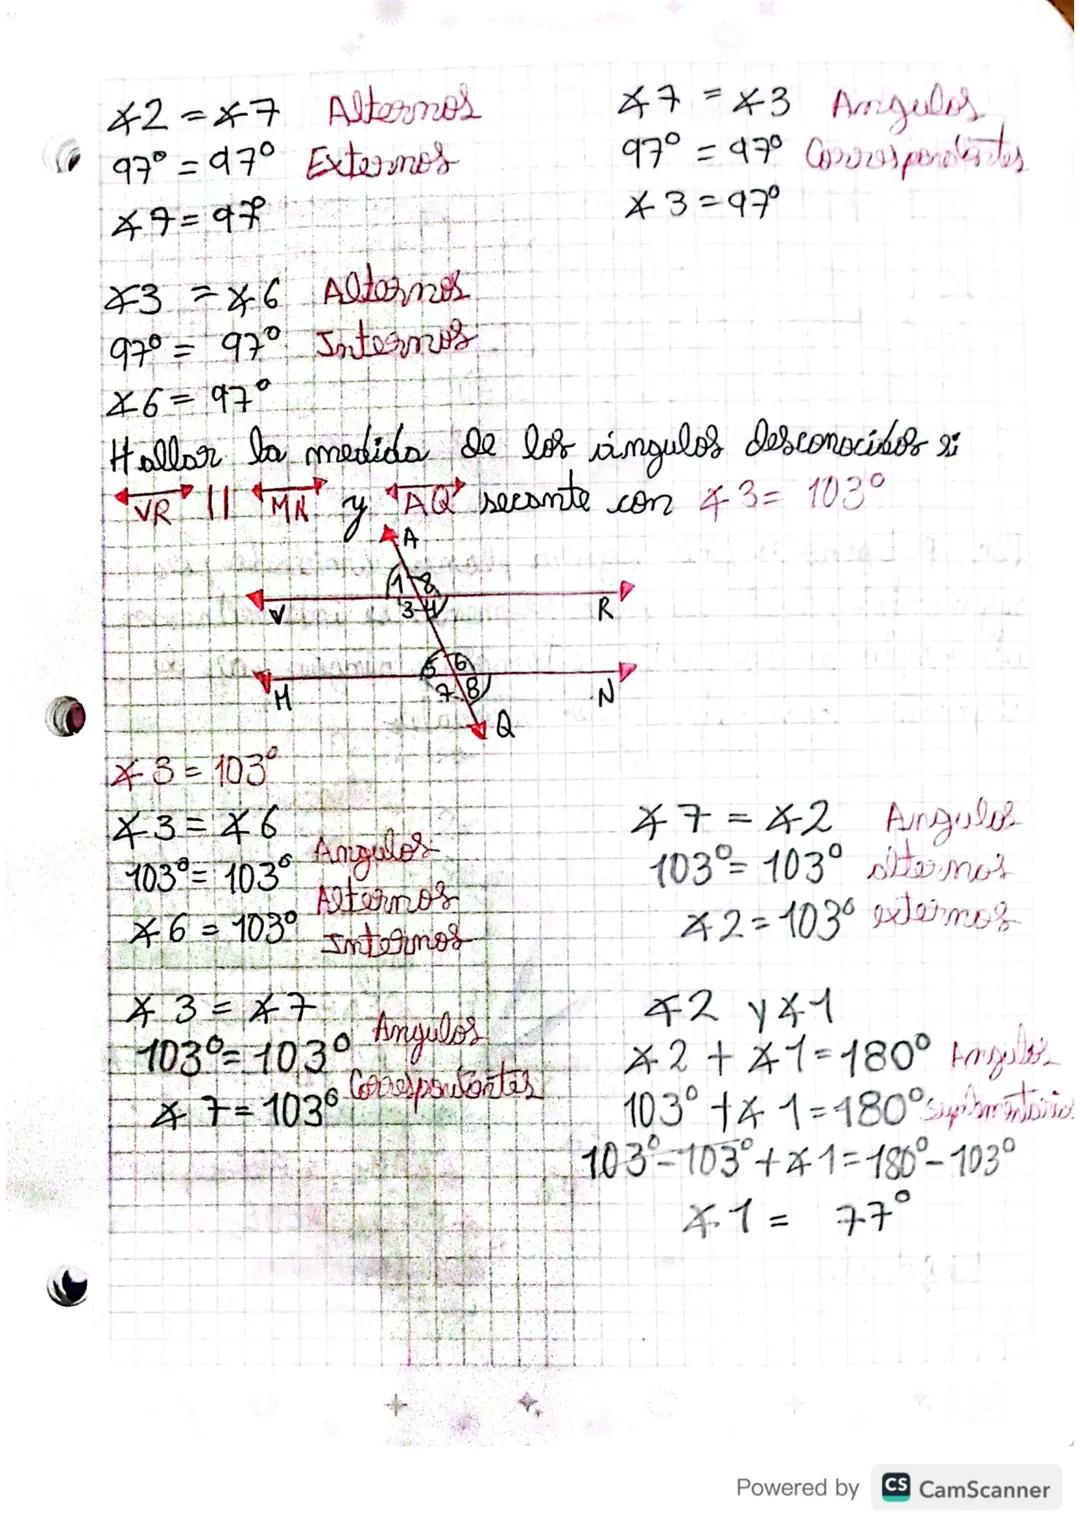 ∡2 = ∡7 Alternos
97° = 97° Externos
∡7 = 97°
∡7 = ∡3 Angulos
97° = 97° Correspondientes
∡3 = 97°
∡3 = ∡6 Alternos
97° = 97° Internos
∡6 = 97°
Hallar la medida de los ángulos desconocidos si
VR || MN y AQ secante con ∡3 = 103°
A
1 2
V 3 4 R
5 6
M 7 8 N
Q
∡3 = 103°
∡3 = ∡6 Angulos
103° = 103° Alternos
∡6 = 103° Internos
∡7 = ∡2 Angulos
103° = 103° alternos
∡2 = 103° externos
∡3 = ∡7 Angulos
103° = 103° Correspondantes
∡7 = 103°
∡2 y ∡1
∡2 + ∡1 = 180° Angulos
103° + ∡1 = 180°
103° - 103° + ∡1 = 180° - 103°
∡1 = 77°
Powered by CS CamScanner